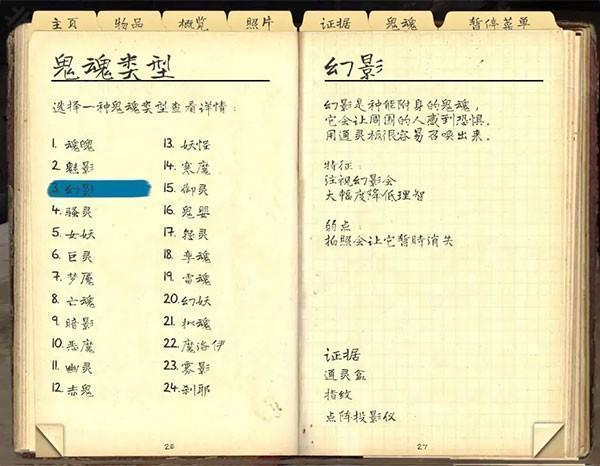 主页 物品 概览 照片 证据 鬼魂 暂停菜单
鬼魂类型
选择一种鬼魂类型查看详情：
1. 魂魄
2. 魅影
3. 幻影
4. 骚灵
5. 女妖
6. 巨灵
7. 梦魇
8. 亡魂
9. 暗影
10. 恶魔
11. 幽灵
12. 赤鬼
13. 妖怪
14. 寒魔
15. 御灵
16. 鬼婴
17. 怨灵
18. 孪魂
19. 雷魂
20. 幻妖
21. 拟魂
22. 魔洛伊
23. 雾影
24. 刹耶
26
幻影
幻影是种能附身的鬼魂，
它会让周围的人感到恐惧.
用通灵板很容易召唤出来.
特征：
注视幻影会
大幅度降低理智
弱点：
拍照会让它暂时消失
证据
通灵盒
指纹
点阵投影仪
27